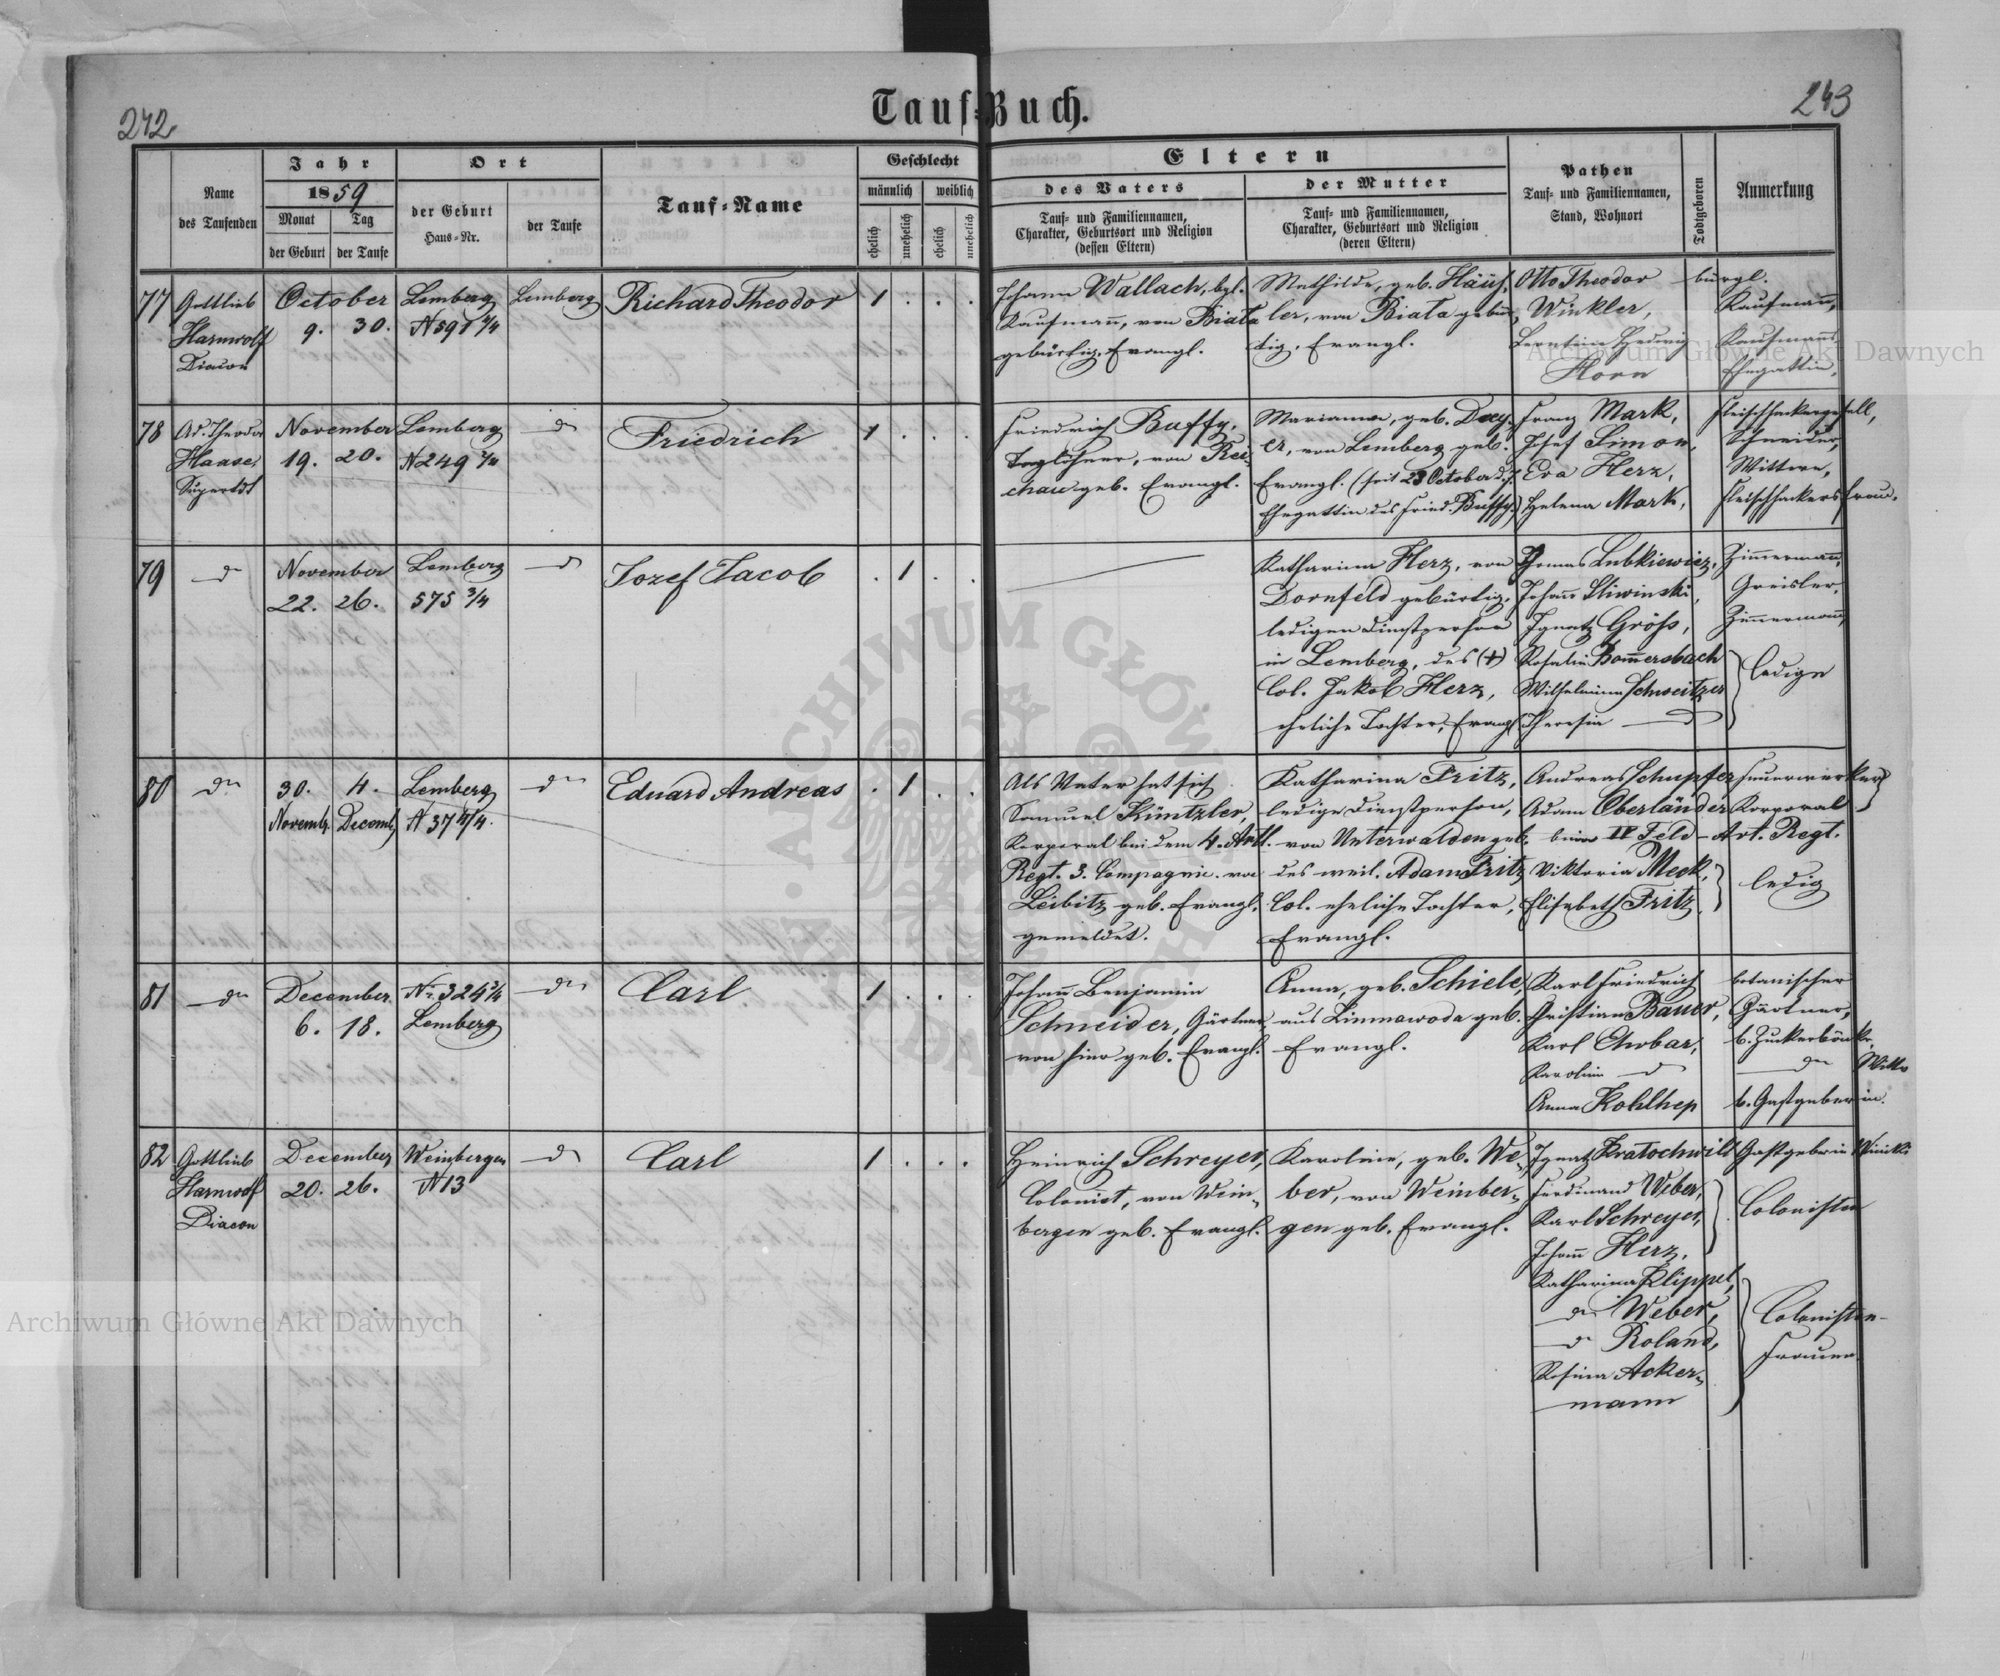 242
243
Tauf-Buch.
Name des Taufenden
Jahr
1859
Monat
Tag
der Geburt
der Taufe
Ort
der Geburt
Haus-Nr.
der Taufe
Tauf-Name
Geschlecht
männlich
weiblich
ehelich
unehelich
ehelich
unehelich
Eltern
des Vaters
Tauf- und Familiennamen,
Charakter, Geburtsort und Religion
(dessen Eltern)
der Mutter
Tauf- und Familiennamen,
Charakter, Geburtsort und Religion
(deren Eltern)
Pathen
Tauf- und Familiennamen,
Stand, Wohnort
Todtgeboren
Anmerkung
77
Gottlieb
Harnwolf
Diacon
October
9. 30.
Lemberg
N 591 4/4
Lemberg
Richard Theodor
1 . . .
Johann Wallach, bgl.
Kaufmann, von Biala
gebürtig. Evangl.
Mathilde, geb. Häus-
ler, von Biala gebür-
tig, Evangl.
Otto Theodor
Winkler,
Hedwig
Horn
bürgl.
Kaufmann,
Kaufmanns
Ehegattin.
78
Ad. Theodor
Haase,
Superdt
November
19. 20.
Lemberg
N 249 2/4
do
Friedrich
1 . . .
Friedrich Buffy,
Taglöhner, von Rei-
chau geb. Evangl.
Marianne, geb.
er, von Lemberg geb.
Evangl. (seit 23 October d. J.
Ehegattin des Fried. Buffy)
Franz Mark,
Josef Simon,
Eva Herz,
Helena Mark,
Fleischhackergesell,
Schneider,
Wittwe,
Fleischhackersfrau.
79
do
November
22. 26.
Lemberg
575 3/4
do
Jozef Jacob
. 1 . .
Katharina Herz, von
Dornfeld gebürtig,
ledigen Dienstperson
in Lemberg, des (+)
Col. Jakob Herz,
eheliche Tochter, Evangl.
Thomas Lubkiewicz,
Johann Sliwinski,
Ignatz Gröss,
Rosalia Bomersbach
Wilhelmine Schweitzer
Theresia do
Zimmermann,
Greisler,
Zimmermann,
ledige
80
do
30. 4.
Novemb. Decemb.
Lemberg
N 37 4/4.
do
Eduard Andreas
. 1 . .
Als Vater hat sich
Samuel Küntzler,
Korporal bei dem 4. Artl.
Regt. 3. Compagnie. von
Leibitz geb. Evangl.
gemeldet.
Katharina Fritz,
ledige Dienstperson,
von Unterwalden geb.
des weil. Adam Fritz
Col. eheliche Tochter,
Evangl.
Andreas Schupfer Feuerwerker
Adam Oberländer Korporal
beim IV Feld-Art. Regt.
Viktoria Meck,
Elisabeth Fritz
ledig
81
do
December
6. 18.
Nr. 324 3/4
Lemberg
do
Carl
1 . . .
Johann Benjamin
Schneider, Gärtner
von hier geb. Evangl.
Anna, geb. Schiele,
aus Linnawoda geb.
Evangl.
Karl Friedrich
Christian Bauer,
Karl Chobar,
Karolina do
Anna Kohlhep
botanischer
Gärtner,
b. Zuckerbäcker
do Witt.
b. Gastgeberin.
82
Gottlieb
Harnwolf
Diacon
December
20. 26.
Weinbergen
N 13
do
Carl
1 . . .
Heinrich Schreyer,
Colonist, von Wein-
bergen geb. Evangl.
Karoline, geb. We-
ber, von Weinber-
gen geb. Evangl.
Ignatz Kratochwill
Ferdinand Weber,
Karl Schreyer,
Johann Herz,
Katharina Klippel,
do Weber,
do Roland,
Rosina Acker-
mann
Gastgeber in Winiki
Colonisten
Colonisten-
Frauen
Archiwum Główne Akt Dawnych
Archiwum Główne Akt Dawnych
ARCHIWUM GŁÓWNE AKT DAWNYCH